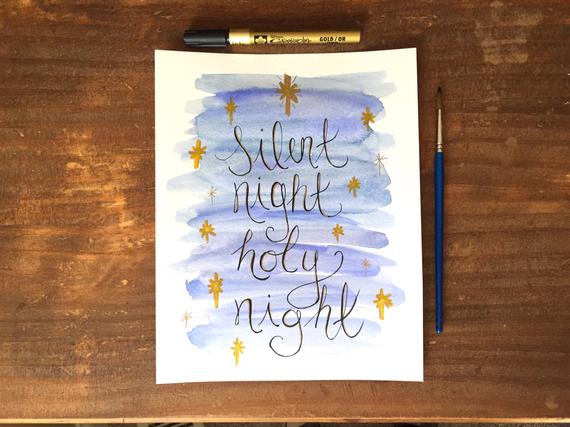 GOLD/OR
silent
night
holy
night